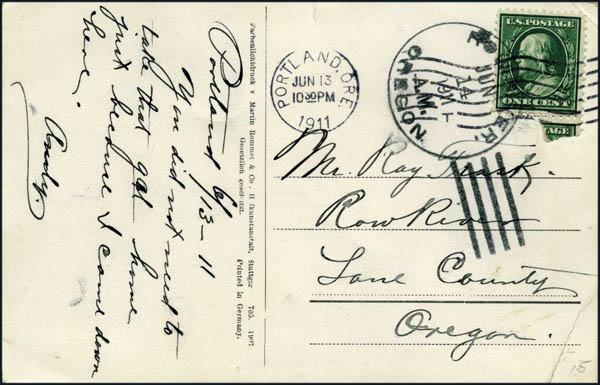 Portland 6/13-11
You did not need to
take that gal home
just because I came down
here.
Andy.
Farbenlichtdruck v Martin Rommel & Co., Hofkunstanstalt, Stuttgart 705. 1907
Gesetzlich geschützt. Printed in Germany.
PORTLAND, ORE
JUN 13
10 30 PM
1911
JUN
14
A.M.
1911
OREGON
U.S. POSTAGE
ONE CENT
Mr. Ray
Row River
Lane County
Oregon.
15